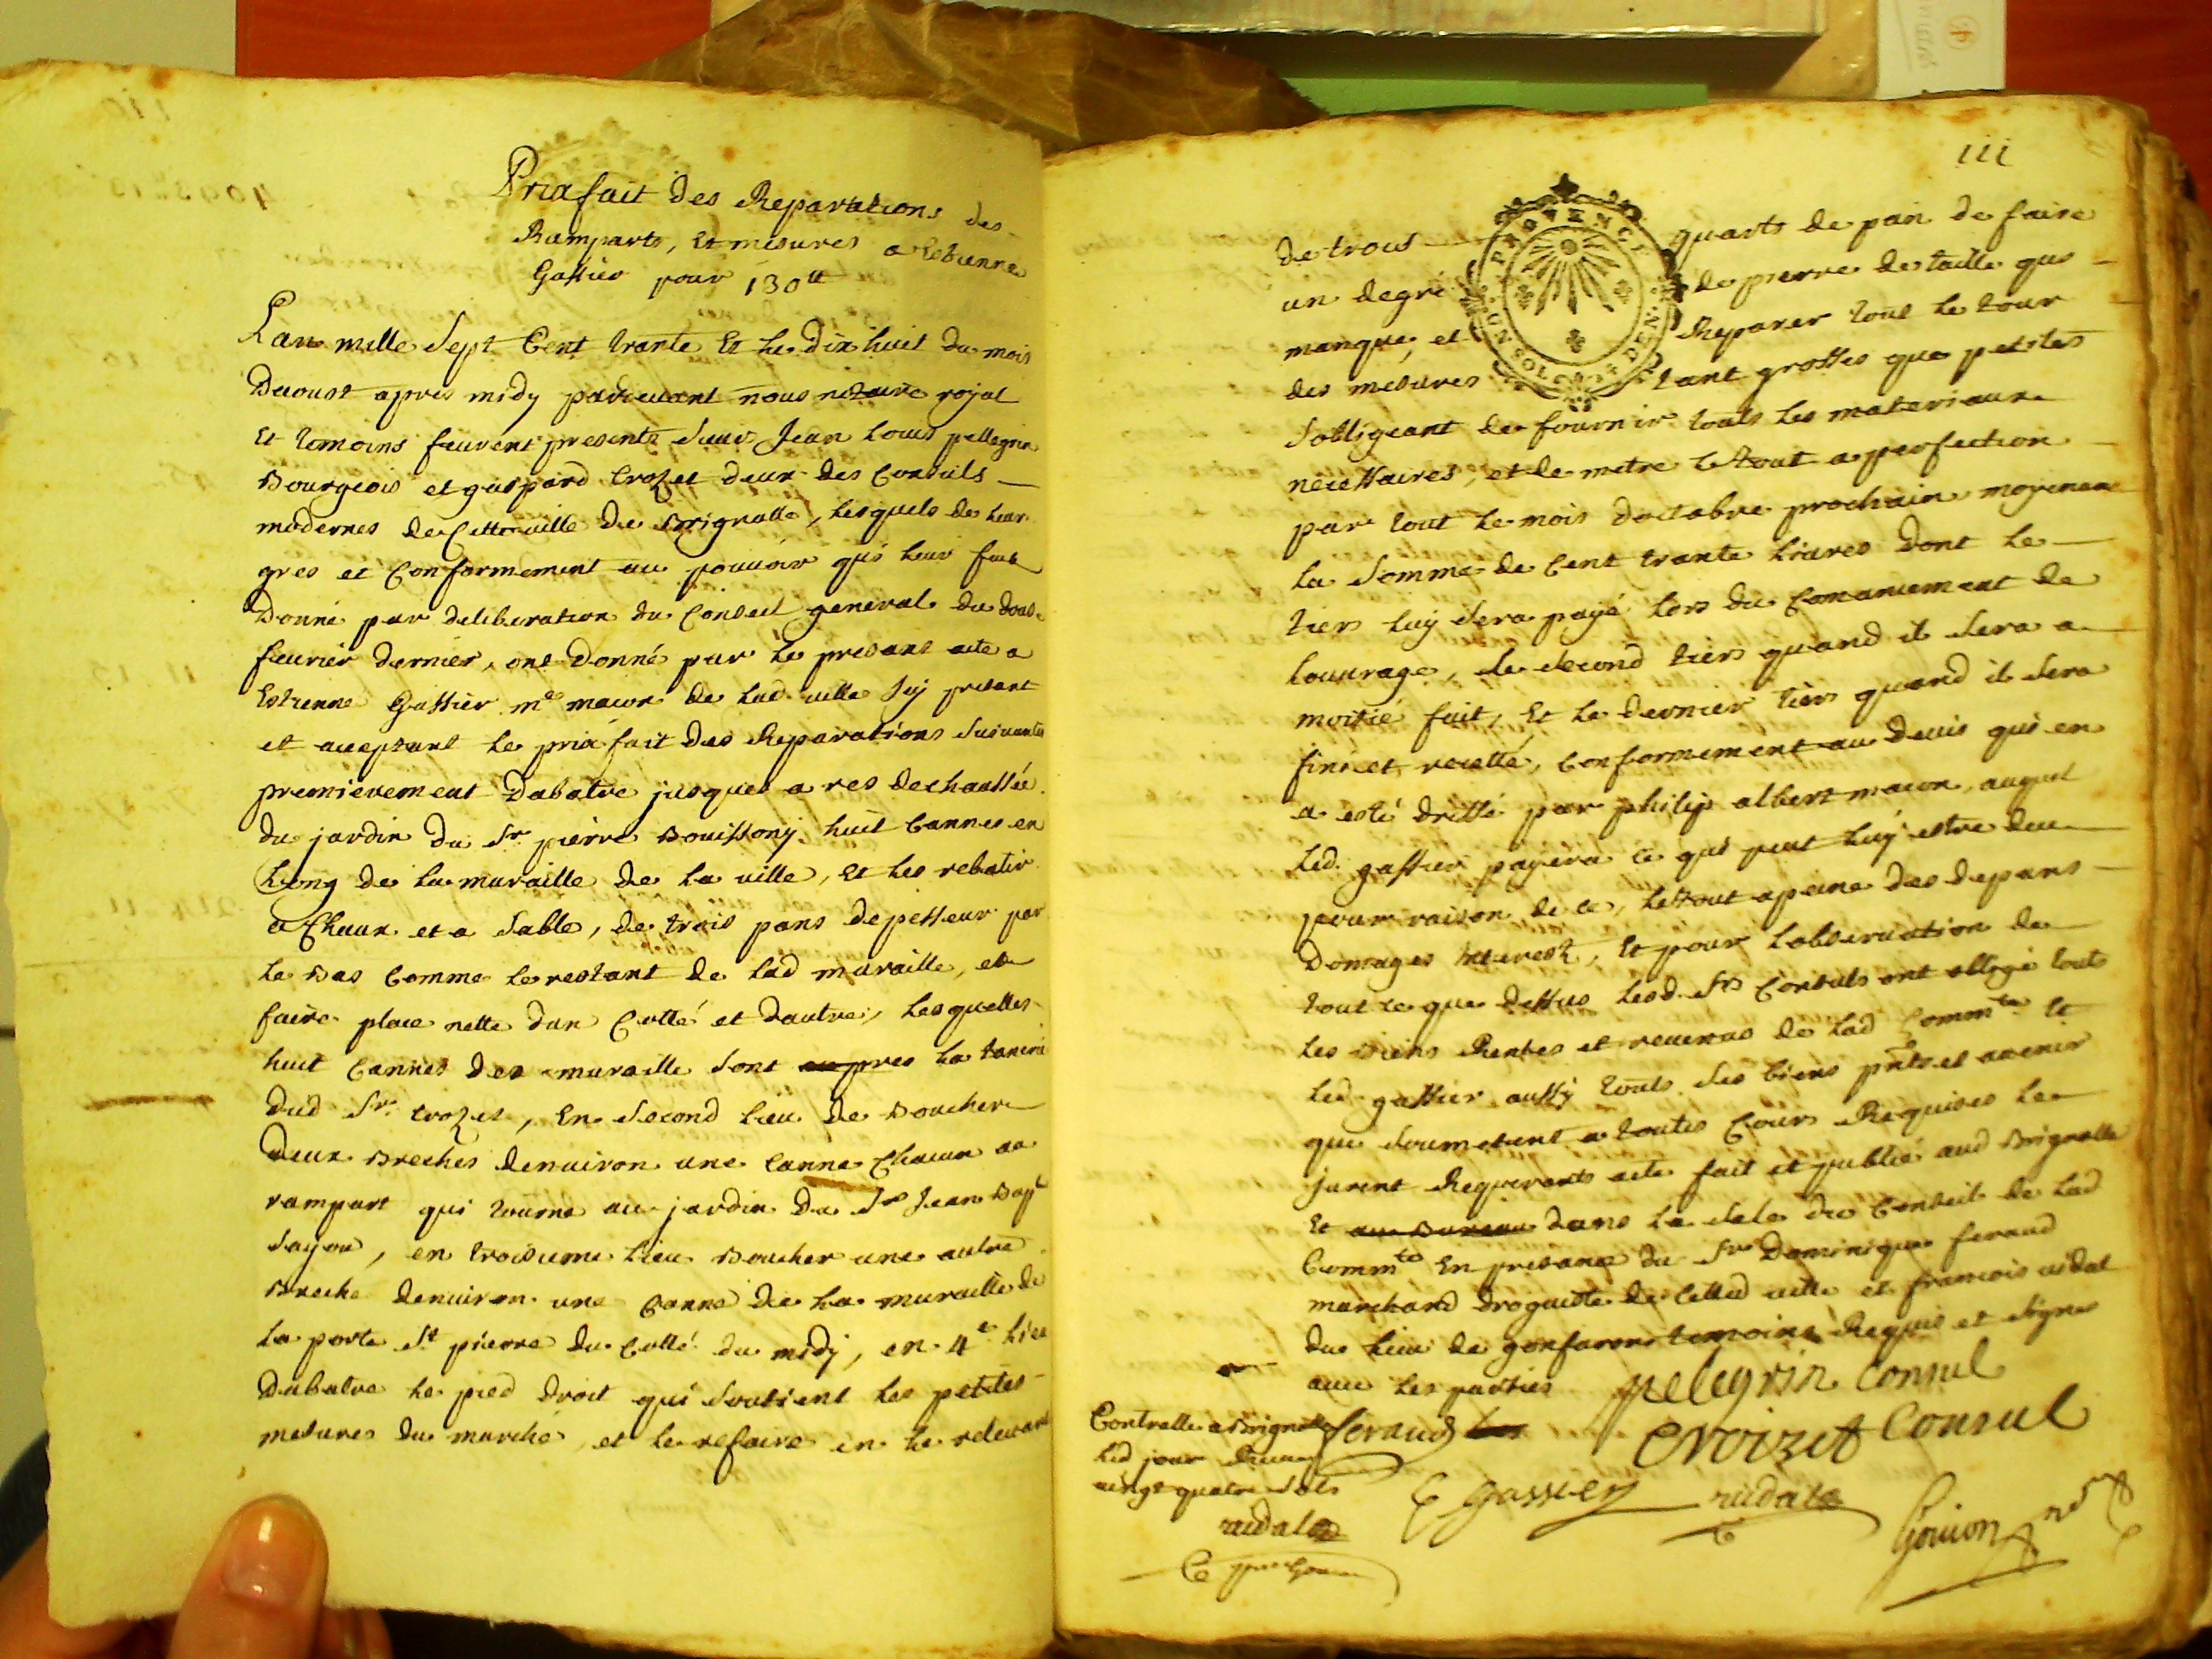 Prixfait des Reparations des
Ramparts, et mesures a Estienne
Gassier pour 130tt
Lan mille Sept Cent trante Et le dix huit du mois
Daoust apres midy pardevant nous notaire royal
Et temoins feurent presents Sieur Jean Louis pellegrin
Bourgeois et gaspard Crozet deux des Consuls
modernes de Cette ville de Brignolle, lesquels de leur
gres et Conformement au pouvoir qui leur feut
Donné par deliberation du Conseil general du dous
feuvrier dernier, ont Donné par le presant acte a
Estienne Gassier me macon de lad ville Icy presant
et acceptant le prix fait des Reparations Suivantes
premierement Dabatre jusques a res dechaussée
du jardin du Sr pierre Bouissony huit Cannes en
Long de la muraille de la ville, et les rebatir
a Chaux et a Sable, de trois pans depesseur par
le Bas Comme le restant de lad muraille, et
faire place nette dun Cotté et dautre, lesquelles
huit Cannes des muraille Sont aupres la tanerie
dud Sr Crozet, En Second lieu de Boucher
Deux Breches denviron une Canne Chacun au
rampart qui tourne au jardin du Sr Jean Bapt
Sayou, en troisieme lieu Boucher une autre
Breche denviron une Canne de la muraille de
la porte St pierre du Cotté du midy, en 4e lieu
Dabatre le pied droit qui Soutient les petites
mesures du marché, et le refaire en le relevant
iii
PROVENCE
UN SOL DEN.
de trous quarts de pan de faire
un degré de pierre de taille qui
manque, et Reparer tout le tour
des mesures tant grosses que petites
Sobligeant de fournir touts les materiaux
necessaires, et de metre le tout a perfection
par tout le mois doctobre prochain moyenant
la Somme de Cent trante livres Dont le
tiers luy Sera payé lors du Comancement de
louvrage, le Second tiers quand il Sera a
moitié fait, Et le dernier tiers quand il Sera
fini et recetté, Conformement au Devis qui en
a esté dressé par philip albert macon, auquel
led. gassier payera ce qui peut luy estre deu
pour raison de ce, le tout a peine des depans
Domages Interest, Et pour lobservation de
tout ce que dessus lesd. Srs Consuls ont obligé touts
les Biens Rentes et revenus de lad Commte Et
led gassier aussy touts Ses biens pnts et avenir
que Soumetent a toutes Cours Requises le
jurent Requerants acte fait et publié aud Brignolle
Et au Bureau dans la Sale du Conseil de lad
Commte En presance du Sr Dominique feraud
marchand droguiste de Cetted ville et francois vidal
du lieu de gonfaron temoins Requis et Signes
avec les parties
pelegrin Consul
Croizet Consul
feraud
E Gassier
vidal
Gouion
Controlle a Brignolle
led jour
vingt quatre Sols
vidal